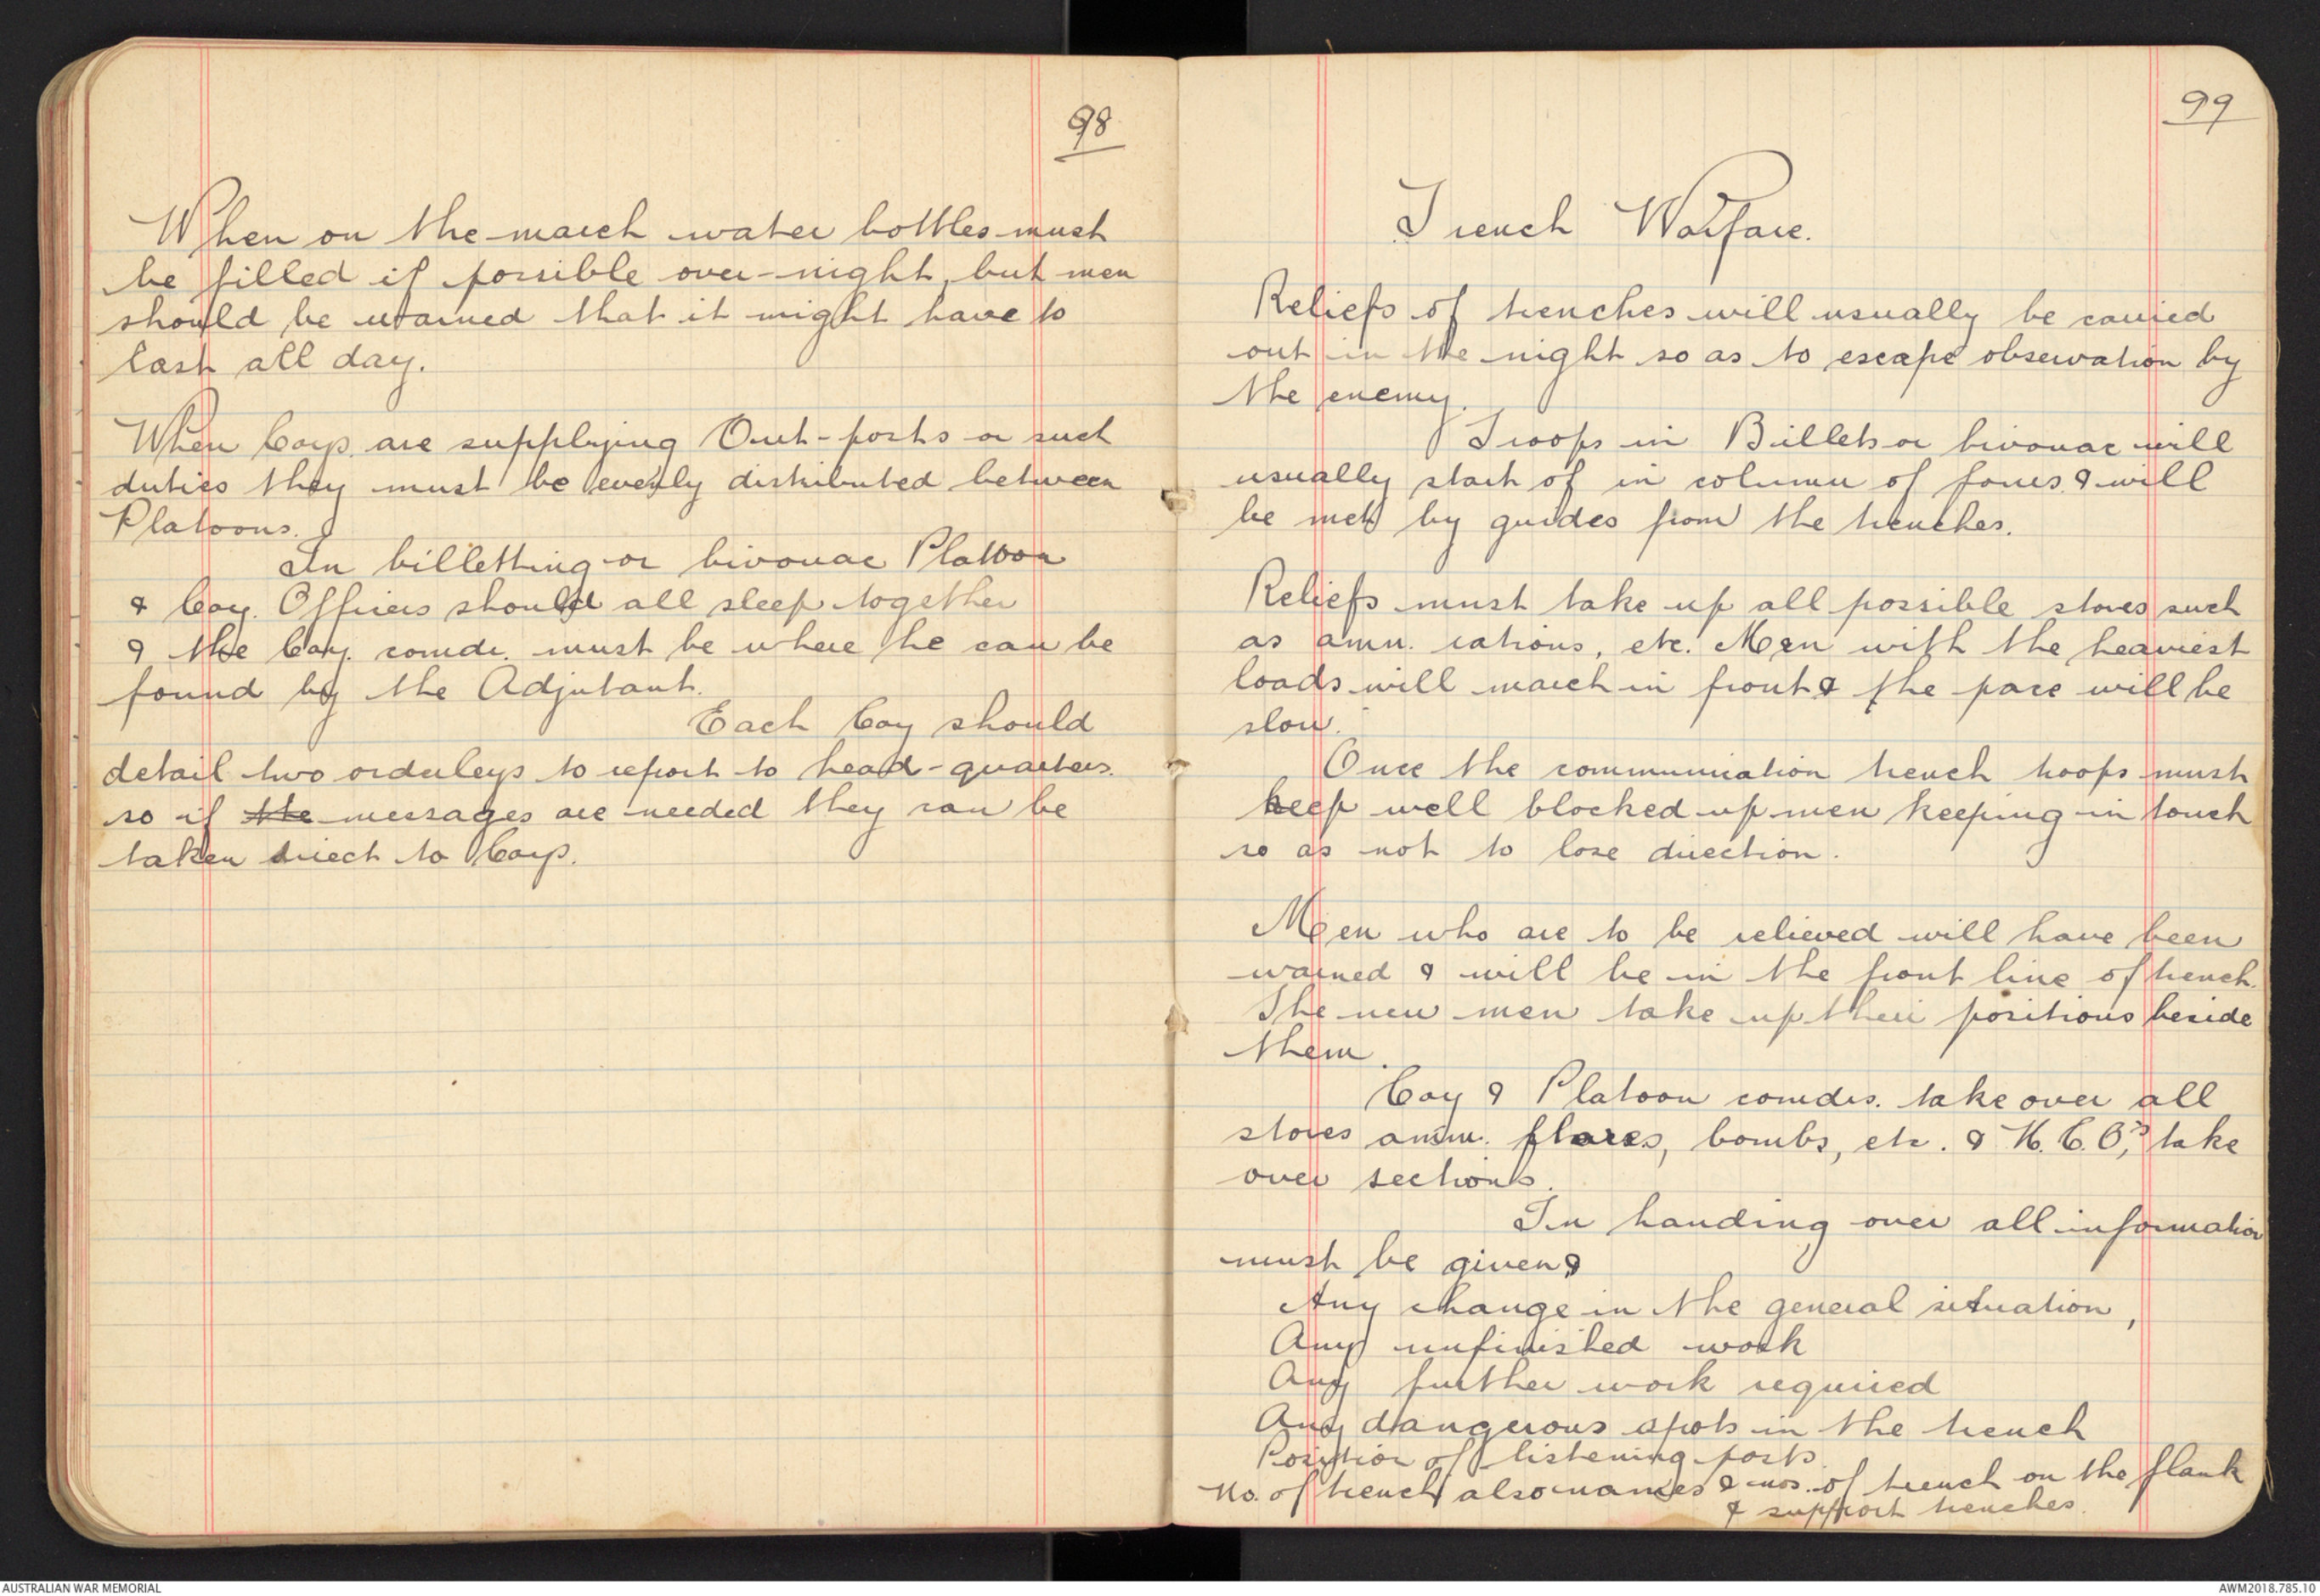 98
When on the march water bottles must
be filled if possible over-night, but men
should be warned that it might have to
last all day.
When Coys. are supplying Out-posts or such
duties they must be evenly distributed between
Platoons.
In billetting or bivouac Platoon
& Coy. Officers should all sleep together
& the Coy. comdr. must be where he can be
found by the Adjutant.
Each Coy should
detail two orderleys to report to head-quarters.
so if the messages are needed they can be
taken direct to Coys.
99
Trench Warfare.
Reliefs of trenches will usually be carried
out in the night so as to escape observation by
the enemy.
Troops in Billets or bivouac will
usually start of in column of fours & will
be met by guides from the trenches.
Reliefs must take up all possible stores such
as amn. rations, etc. Men with the heaviest
loads will march in front & the pace will be
slow.
Once the communication trench troops must
keep well blocked up men keeping in touch
so as not to lose direction.
Men who are to be relieved will have been
warned & will be in the front line of trench.
The new men take up their positions beside
them.
Coy & Platoon comdrs. take over all
stores amm. flares, bombs, etc. & N.C.O,'s take
over sections.
In handing over all information
must be given &
Any change in the general situation,
Any unfinished work
Any further work required
Any dangerous spots in the trench
Position of listening posts.
No. of trench also names & nos. of trench on the flank
& support trenches.
AUSTRALIAN WAR MEMORIAL
AWM2018.785.10